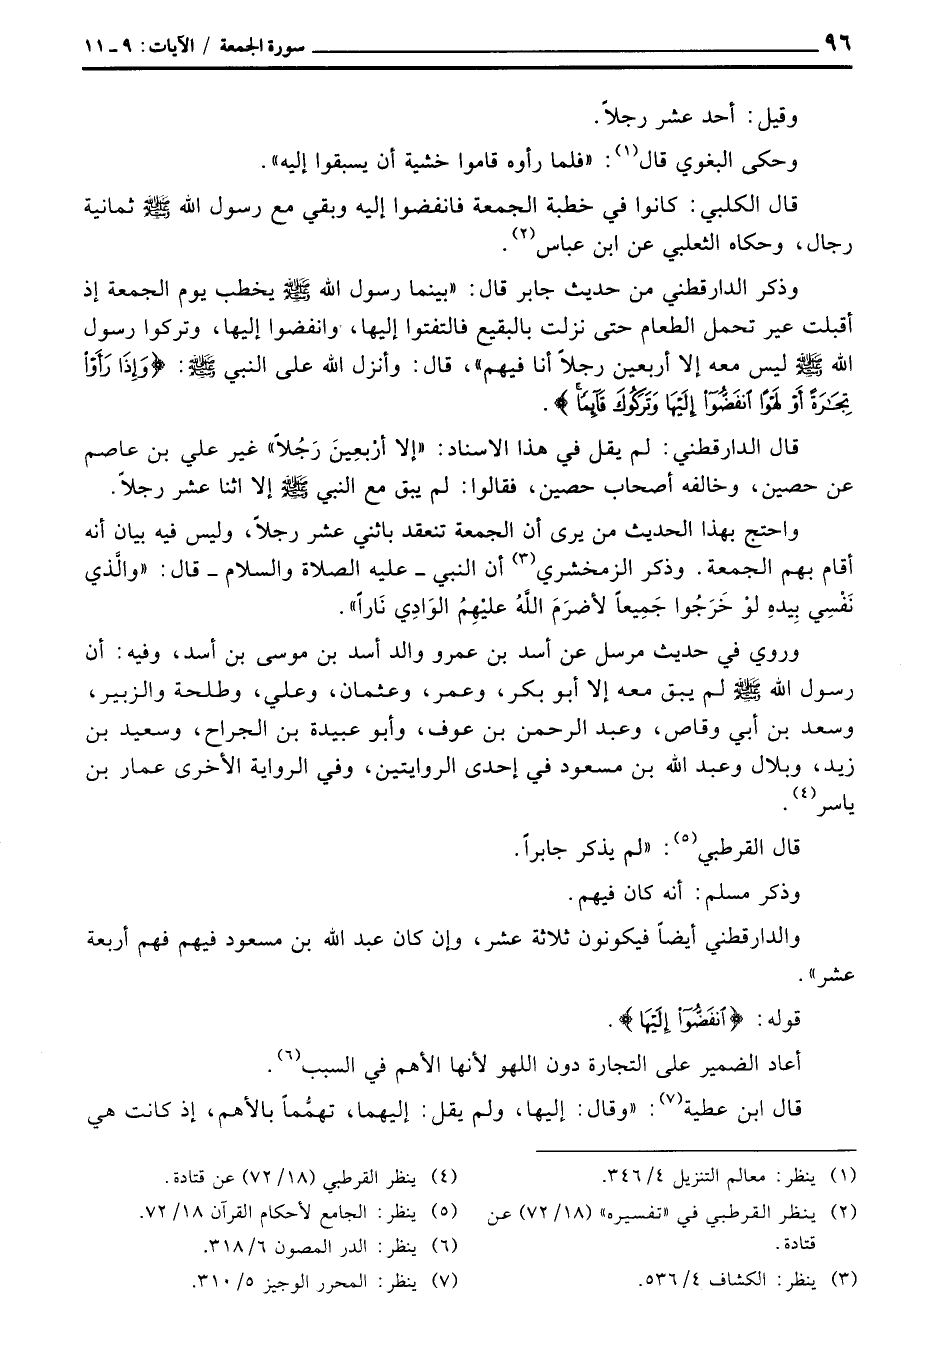 ٩٦ سورة الجمعة / الآيات: ٩ ـ ١١
وقيل: أحد عشر رجلاً.
وحكى البغوي قال(١): «فلما رأوه قاموا خشية أن يسبقوا إليه».
قال الكلبي: كانوا في خطبة الجمعة فانفضوا إليه وبقي مع رسول الله ﷺ ثمانية
رجال، وحكاه الثعلبي عن ابن عباس(٢).
وذكر الدارقطني من حديث جابر قال: «بينما رسول الله ﷺ يخطب يوم الجمعة إذ
أقبلت عير تحمل الطعام حتى نزلت بالبقيع فالتفتوا إليها، وانفضوا إليها، وتركوا رسول
الله ﷺ ليس معه إلا أربعين رجلاً أنا فيهم»، قال: وأنزل الله على النبي ﷺ: ﴿وَإِذَا رَأَوْا
تِجَـٰرَةً أَوْ لَهْوًا ٱنفَضُّوٓا۟ إِلَيْهَا وَتَرَكُوكَ قَآئِمًا ۚ﴾.
قال الدارقطني: لم يقل في هذا الاسناد: «إلا أرْبعِينَ رَجُلاً» غير علي بن عاصم
عن حصين، وخالفه أصحاب حصين، فقالوا: لم يبق مع النبي ﷺ إلا اثنا عشر رجلاً.
واحتج بهذا الحديث من يرى أن الجمعة تنعقد باثني عشر رجلاً، وليس فيه بيان أنه
أقام بهم الجمعة. وذكر الزمخشري(٣) أن النبي ـ عليه الصلاة والسلام ـ قال: «والَّذي
نَفْسِي بِيدهِ لوْ خَرَجُوا جَمِيعاً لأضرَمَ اللَّهُ عليْهِمُ الوَادِي نَاراً».
وروي في حديث مرسل عن أسد بن عمرو والد أسد بن موسى بن أسد، وفيه: أن
رسول الله ﷺ لم يبق معه إلا أبو بكر، وعمر، وعثمان، وعلي، وطلحة والزبير،
وسعد بن أبي وقاص، وعبد الرحمن بن عوف، وأبو عبيدة بن الجراح، وسعيد بن
زيد، وبلال وعبد الله بن مسعود في إحدى الروايتين، وفي الرواية الأخرى عمار بن
ياسر(٤).
قال القرطبي(٥): «لم يذكر جابراً.
وذكر مسلم: أنه كان فيهم.
والدارقطني أيضاً فيكونون ثلاثة عشر، وإن كان عبد الله بن مسعود فيهم فهم أربعة
عشر».
قوله: ﴿ٱنفَضُّوٓا۟ إِلَيْهَا﴾.
أعاد الضمير على التجارة دون اللهو لأنها الأهم في السبب(٦).
قال ابن عطية(٧): «وقال: إليها، ولم يقل: إليهما، تهمُّماً بالأهم، إذ كانت هي
(١) ينظر: معالم التنزيل ٤/ ٣٤٦.
(٢) ينظر القرطبي في «تفسيره» (١٨/ ٧٢) عن
قتادة.
(٣) ينظر: الكشاف ٤/ ٥٣٦.
(٤) ينظر القرطبي (١٨/ ٧٢) عن قتادة.
(٥) ينظر: الجامع لأحكام القرآن ١٨/ ٧٢.
(٦) ينظر: الدر المصون ٦/ ٣١٨.
(٧) ينظر: المحرر الوجيز ٥/ ٣١٠.